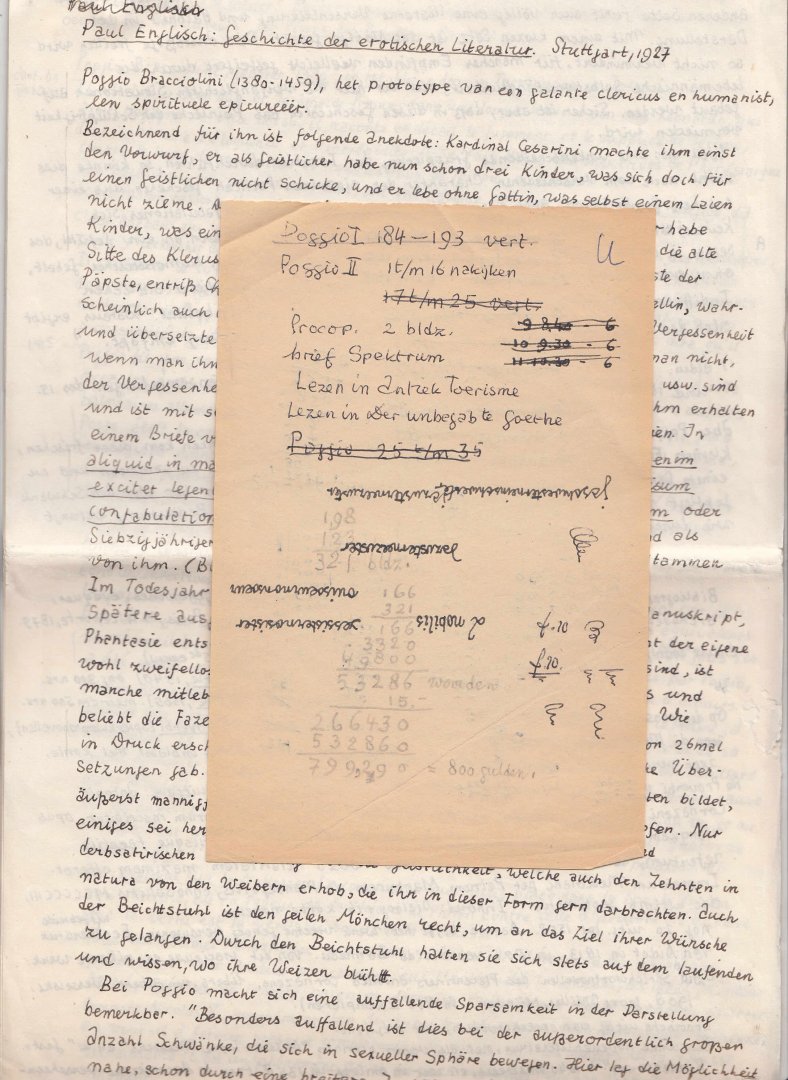 Paul Englisch
Paul Englisch: Geschichte der erotischen Literatur. Stuttgart, 1927
Poggio Bracciolini (1380-1459), het prototype van een galante clericus en humanist,
een spirituele epicureeër.
Bezeichnend für ihn ist folgende Anekdote: Kardinal Cesarini machte ihm einst
den Vorwurf, er als Geistlicher habe nun schon drei Kinder, was sich doch für
einen Geistlichen nicht schicke, und er lebe ohne Gattin, was selbst einem Laien
nicht zieme.
Kinder, was ein
habe
Sitte des Klerus
die alte
Päpste, entriß
ste der
scheinlich auch
ellin, wahr-
und übersetzte
Vergessenheit
wenn man ihn
man nicht,
der Vergessenhe
usw. sind
und ist mit s
hm erhalten
einem Briefe v
en. In
aliquid in ma
enim
excitet legen
isum
confabulation
m oder
Siebzigjähriger
d als
von ihm. (B
tammen
Im Todesjahr
Spätere aus
anuskript,
Phantasie ents
st der eigene
wohl zweifello
sind, ist
manche mitleb
s und
beliebt die Faze
Wie
in Druck ersch
on 26mal
Setzungen gab.
ke Über-
äußerst mannigf
ten bildet,
einiges sei her
fen. Nur
derbsatirischen
d
Geistlichkeit, welche auch den Zehnten in
natura von den Weibern erhob, die ihn in dieser Form gern darbrachten. Auch
der Beichtstuhl ist den geilen Mönchen recht, um an das Ziel ihrer Wünsche
zu gelangen. Durch den Beichtstuhl halten sie sich stets auf dem laufenden
und wissen, wo ihre Weizen blüht.
Bei Poggio macht sich eine auffallende Sparsamkeit in der Darstellung
bemerkbar. "Besonders auffallend ist dies bei der außerordentlich großen
Anzahl Schwänke, die sich in sexueller Sphäre bewegen. Hier lag die Möglichkeit
nahe, schon durch eine breitere
Poggio I 184-193 vert.
Poggio II 1t/m 16 nakijken
17t/m 25 vert.
Procop. 2 bldz.
9 8.40 - 6
10 9.30 - 6
brief Spektrum
11 10.30 - 6
Lezen in Antiek Toerisme
Lezen in Der unbegabte Goethe
Poggio 25 t/m 35
198
123
321 bldz.
166
321
166
3320
49800
53286 woorden
15,-
266430
532860
799,290 = 800 gulden.
zesisternosister
2 mobilis
f.10.
f20.